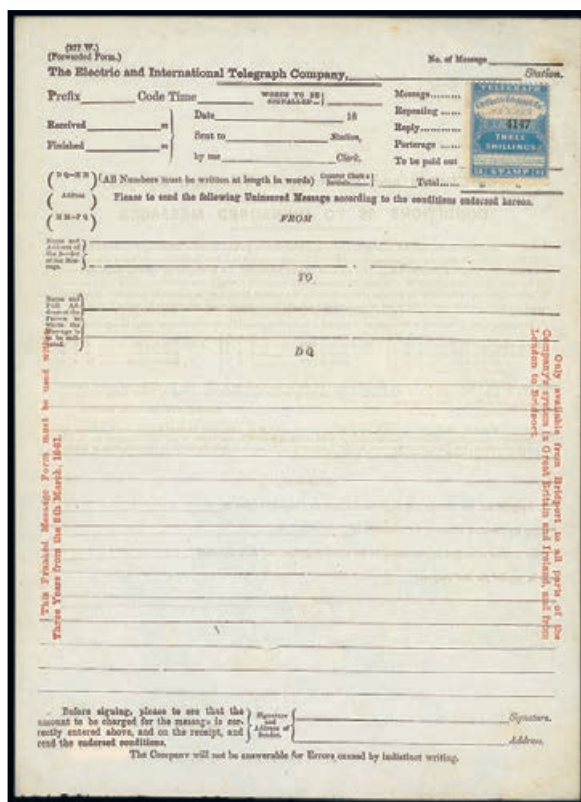 (977 W.)
(Forwarded Form.)
No. of Message
The Electric and International Telegraph Company, Station.
Prefix Code Time WORDS TO BE SIGNALLED
Received m
Finished m
Date 18
Sent to Station,
by me Clerk.
Message.........
Repeating ......
Reply............
Porterage ......
To be paid out
Total......
TELEGRAPH
4147
THREE
SHILLINGS.
STAMP
(DQ—NN)
(Address)
(NN—FQ)
(All Numbers must be written at length in words)
Counter Clerk's Initials
Please to send the following Uninsured Message according to the conditions endorsed hereon.
FROM
Name and
Address of
the Sender
of the Mes-
sage.
TO
Name and
Full Ad-
dress of the
Person to
whom the
Message is
to be deli-
vered.
DQ
This Franked Message Form must be used within
Three Years from the 8th March, 1861.
Only available from Bridport to all parts of the
Company's system in Great Britain and Ireland, and from
London to Bridport.
Before signing, please to see that the
amount to be charged for the message is cor-
rectly entered above, and on the receipt, and
read the endorsed conditions.
Signature
and
Address of
Sender.
Signature.
Address.
The Company will not be answerable for Errors caused by indistinct writing.